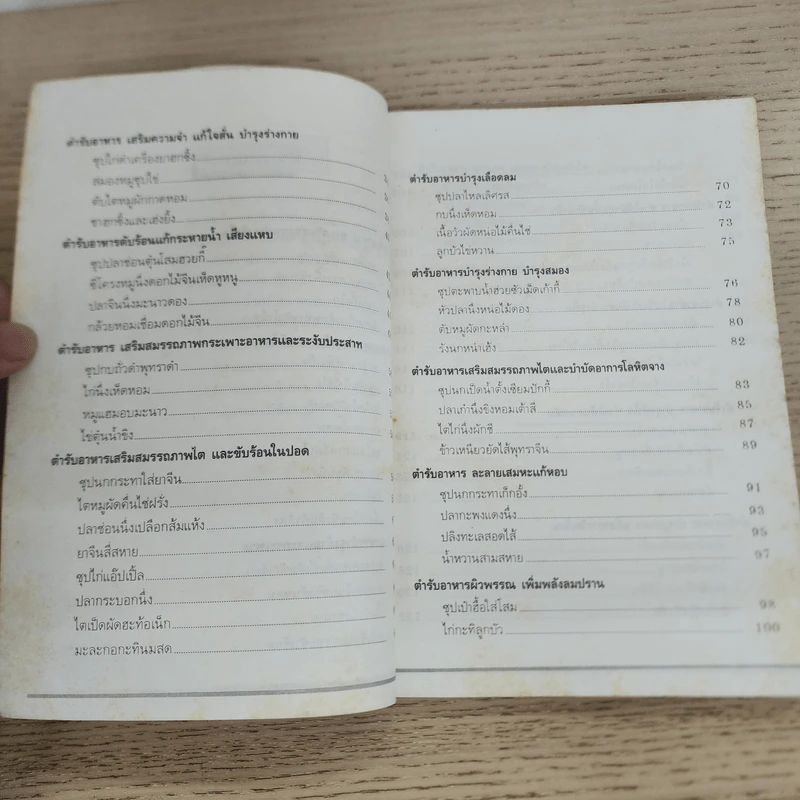 ตำรับอาหาร เสริมความจำ แก้ใจสั่น บำรุงร่างกาย
ซุปไก่ดำเครื่องยาฮกซิ้ง
สมองหมูซุปไข่
ตับไตหมูผักกาดหอม
ชาฮกซิ้งและเฮงยิ้ง
ตำรับอาหารดับร้อนแก้กระหายน้ำ เสียงแหบ
ซุปปลาช่อนตุ๋นโสมฮวยกี๊
ซี่โครงหมูนึ่งดอกไม้จีนเห็ดหูหนู
ปลาจีนนึ่งมะนาวดอง
กล้วยหอมเชื่อมดอกไม้จีน
ตำรับอาหาร เสริมสมรรถภาพกระเพาะอาหารและระงับประสาท
ซุปกบถั่วดำพุทราดำ
ไก่นึ่งเห็ดหอม
หมูแฮมอบมะนาว
ไข่ตุ๋นน้ำขิง
ตำรับอาหารเสริมสมรรถภาพไต และขับร้อนในปอด
ซุปนกกระทาใส่ยาจีน
ไตหมูผัดคื่นไช่ฝรั่ง
ปลาช่อนนึ่งเปลือกส้มแห้ง
ยาจีนสี่สหาย
ซุปไก่แอ๊ปเปิ้ล
ปลากระบอกนึ่ง
ไตเป็ดผัดฮะท้อเน็ก
มะละกอกะทินมสด
ตำรับอาหารบำรุงเลือดลม
ซุปปลาไหลเลิศรส 70
กบนึ่งเห็ดหอม 72
เนื้อวัวผัดหน่อไม้คื่นไช่ 73
ลูกบัวไข่หวาน 75
ตำรับอาหารบำรุงร่างกาย บำรุงสมอง
ซุปตะพาบน้ำฮ่วยซัวเม็ดเก๋ากี้ 76
หัวปลานึ่งหน่อไม้ดอง 78
ตับหมูผัดกะหล่ำ 80
รังนกหน่ำเฮ้ง 82
ตำรับอาหารเสริมสมรรถภาพไตและบำบัดอาการโลหิตจาง
ซุปนกเป็ดน้ำตั้งเซียมปักกี้ 83
ปลาเก๋านึ่งขิงหอมเต้าสี่ 85
ไตไก่นึ่งผักชี 87
ข้าวเหนียวยัดไส้พุทราจีน 89
ตำรับอาหาร ละลายเสมหะแก้หอบ
ซุปนกกระทาเก็กอั้ง 91
ปลากะพงแดงนึ่ง 93
ปลิงทะเลสอดไส้ 95
น้ำหวานสามสหาย 97
ตำรับอาหารผิวพรรณ เพิ่มพลังลมปราน
ซุปเป๋าฮื้อใส่โสม 98
ไก่กะทิลูกบัว 100